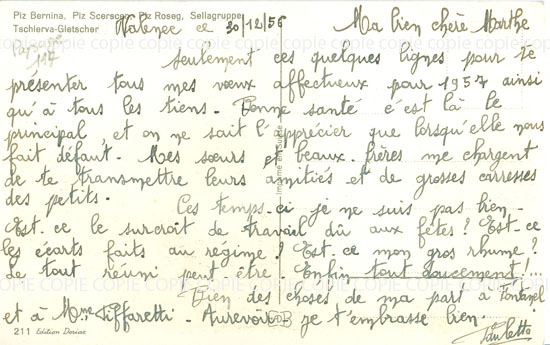 Piz Bernina, Piz Scerscen, Piz Roseg, Sellagruppe
Tschierva-Gletscher
ce 30/12/56
Ma bien chère Marthe
117
Seulement ces quelques lignes pour te
présenter tous mes vœux affectueux pour 1957 ainsi
qu'à tous les tiens. Bonne santé c'est là le
principal, et on ne sait l'apprécier que lorsqu'elle nous
fait défaut. Mes sœurs et beaux-frères me chargent
de te transmettre leurs amitiés et de grosses caresses
des petits. Ces temps-ci je ne suis pas bien.
Est-ce le surcroit de travail dû aux fêtes? Est-ce
les écarts faits au régime? Est-ce mon gros rhume?
de tout réuni peut-être. Enfin tout doucement!...
Bien des choses de ma part à Fontanel
et à Mme Tiffaretti. Aurevoir je t'embrasse bien.
Paulette
211 Edition Dorisc
Imprimé en Suisse
COPIE COPIE COPIE COPIE COPIE COPIE